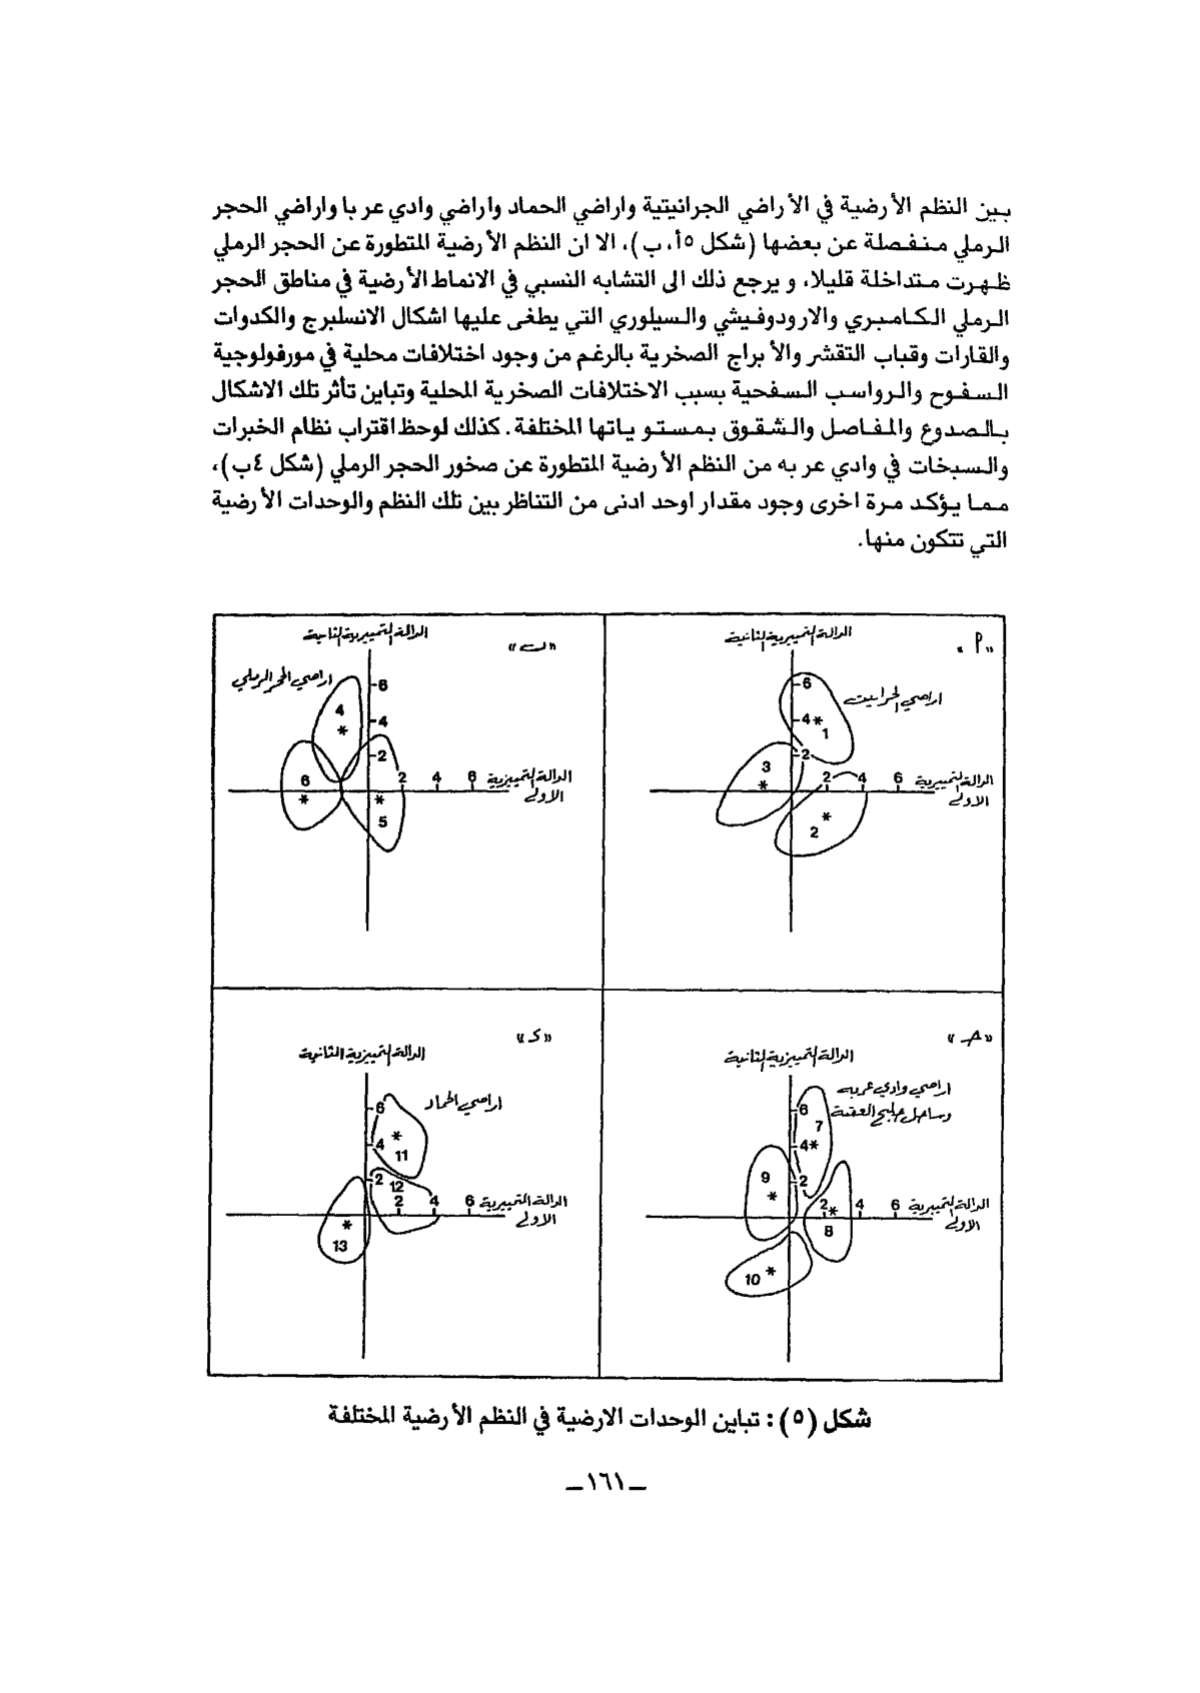 بين النظم الأرضية في الأراضي الجرانيتية واراضي الحماد واراضي وادي عربا واراضي الحجر
الرملي منفصلة عن بعضها (شكل ٥أ، ب)، الا ان النظم الأرضية المتطورة عن الحجر الرملي
ظهرت متداخلة قليلا، ويرجع ذلك الى التشابه النسبي في الانماط الأرضية في مناطق الحجر
الرملي الكامبري والارودوفيشي والسيلوري التي يطغى عليها اشكال الانسلبرج والكدوات
والقارات وقباب التقشر والأبراج الصخرية بالرغم من وجود اختلافات محلية في مورفولوجية
السفوح والرواسب السفحية بسبب الاختلافات الصخرية المحلية وتباين تأثر تلك الاشكال
بالصدوع والمفاصل والشقوق بمستوياتها المختلفة. كذلك لوحظ اقتراب نظام الخبرات
والسبخات في وادي عربه من النظم الأرضية المتطورة عن صخور الحجر الرملي (شكل ٤ب)،
مما يؤكد مرة اخرى وجود مقدار اوحد ادنى من التناظر بين تلك النظم والوحدات الأرضية
التي تتكون منها.
«أ»
الدالة التمييزية الثانية
اراضي الجرانيت
6
4*
1
2
3
*
2 4 6
الدالة التمييزية
الاولى
*
2
«ب»
الدالة التمييزية الثانية
اراضي الحجر الرملي
6
4
4
*
2
6
*
2 4 6
الدالة التمييزية
الاولى
*
5
«جـ»
الدالة التمييزية الثانية
اراضي وادي عربه
وساحل خليج العقبة
6
7
4*
2
9
*
2 4 6
*
8
الدالة التمييزية
الاولى
10 *
«د»
الدالة التمييزية الثانية
اراضي الحماد
6
*
4
11
2
12
2 4 6
الدالة التمييزية
الاولى
*
13
شكل (٥) : تباين الوحدات الارضية في النظم الأرضية المختلفة
ــ ١٦١ ــ